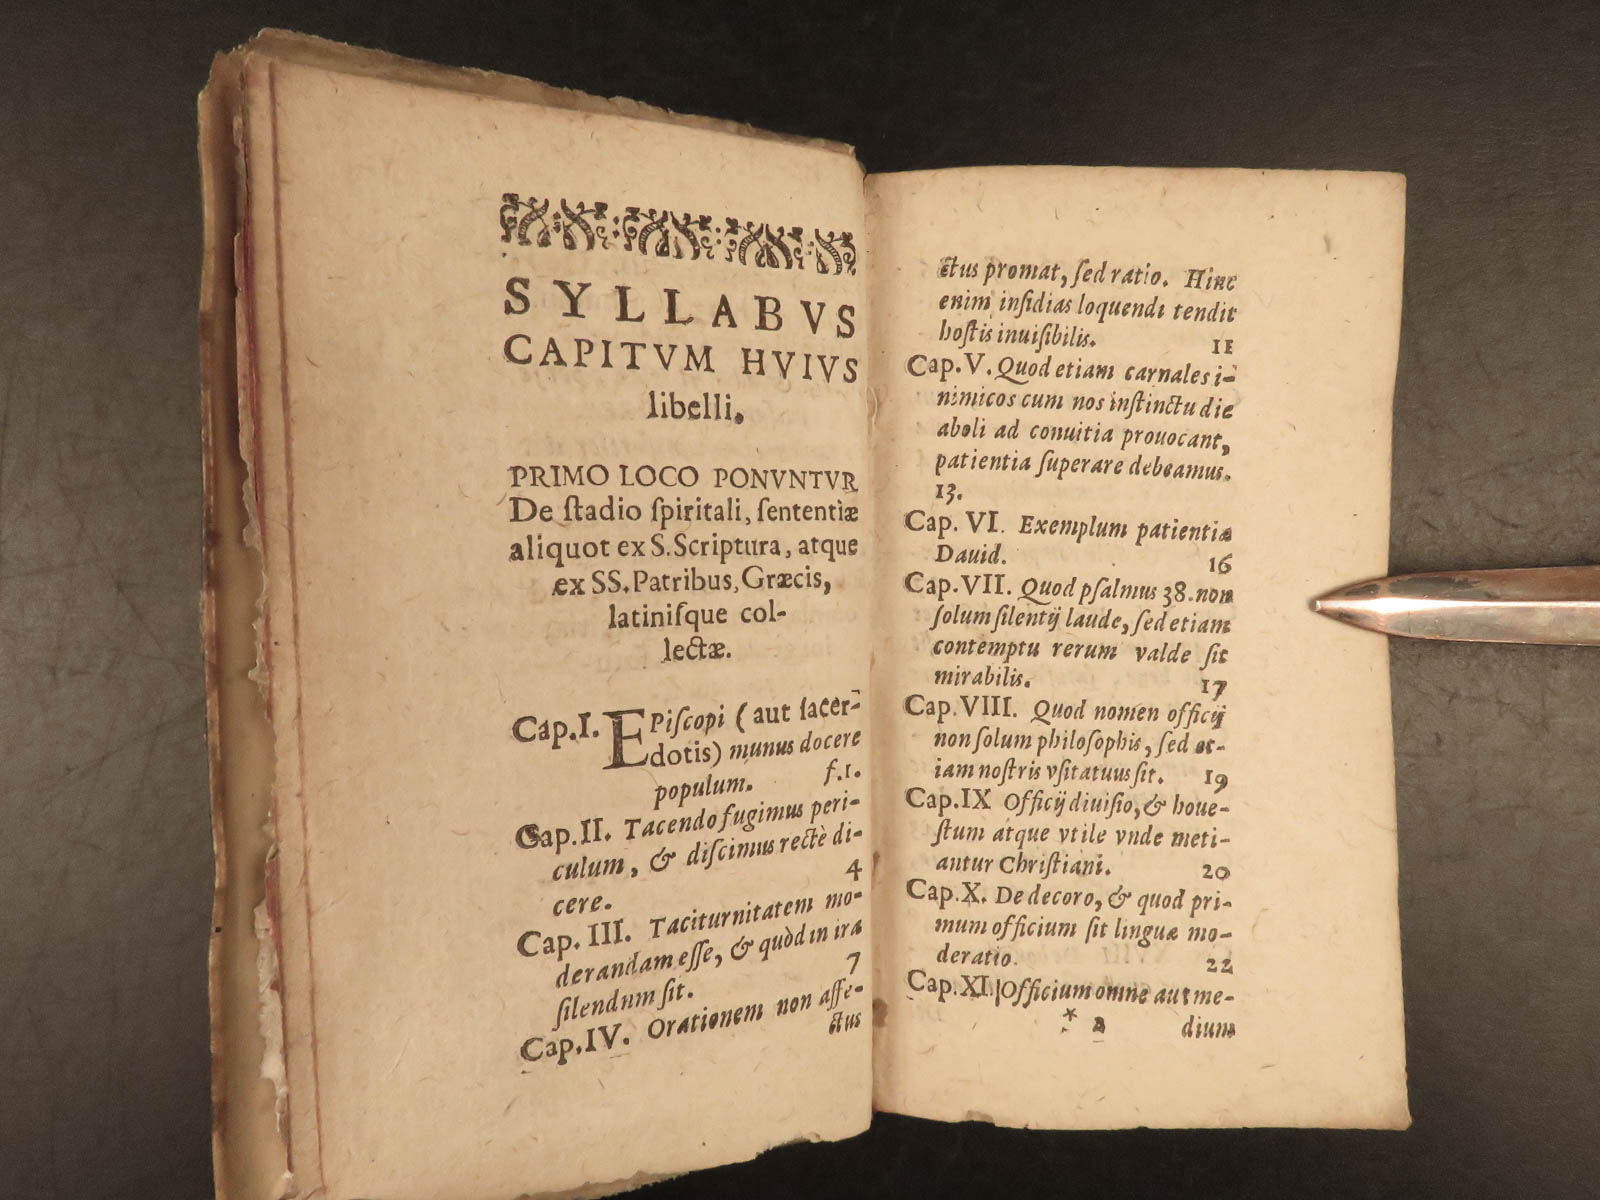 SYLLABVS
CAPITVM HVIVS
libelli.
PRIMO LOCO PONVNTVR
De ſtadio ſpiritali, ſententiæ
aliquot ex S. Scriptura, atque
ex SS. Patribus, Græcis,
latiniſque col-
lectæ.
Cap. I. EPiſcopi (aut ſacer-
dotis) munus docere
populum. f. 1.
Cap. II. Tacendo fugimus peri-
culum, & diſcimus rectè di-
cere. 4
Cap. III. Taciturnitatem mo-
derandam eſſe, & quòd in ira
ſilendum ſit. 7
Cap. IV. Orationem non affe-
ctus
ctus promat, ſed ratio. Hinc
enim inſidias loquendi tendit
hoſtis inuiſibilis. 11
Cap. V. Quod etiam carnales i-
nimicos cum nos inſtinctu die
aboli ad conuitia prouocant,
patientia ſuperare debeamus.
13.
Cap. VI. Exemplum patientiæ
Dauid. 16
Cap. VII. Quod pſalmus 38. non
ſolum ſilentij laude, ſed etiam
contemptu rerum valde ſit
mirabilis. 17
Cap. VIII. Quod nomen officij
non ſolum philoſophis, ſed et-
iam noſtris vſitatuus ſit. 19
Cap. IX Officij diuiſio, & houe-
ſtum atque vtile vnde meti-
antur Chriſtiani. 20
Cap. X. De decoro, & quod pri-
mum officium ſit linguæ mo-
deratio. 22
Cap. XI. Officium omne aut me-
* 2 dium